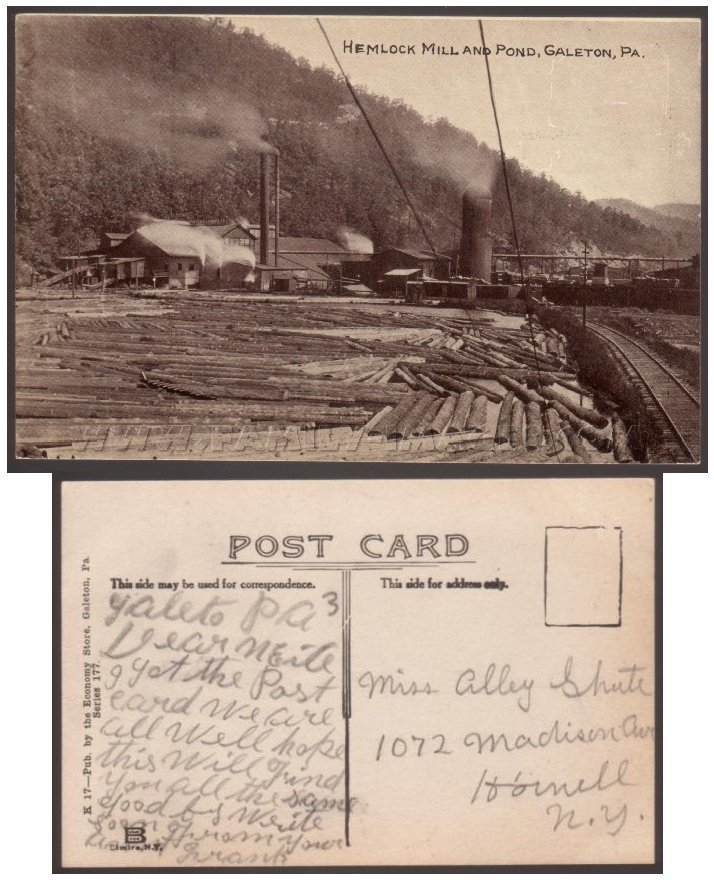 HEMLOCK MILL AND POND, GALETON, PA.
POST CARD
This side may be used for correspondence.
This side for address only.
K 17—Pub. by the Economy Store, Galeton, Pa
Series 177.
Galeto PA 3
Dear
I got the Post
card we are
all well hope
this will find
you all the same
good by write
soon from your
Frank
Elmira, N.Y.
Miss Alley Shute
1072 Madison Ave
Hornell
N.Y.